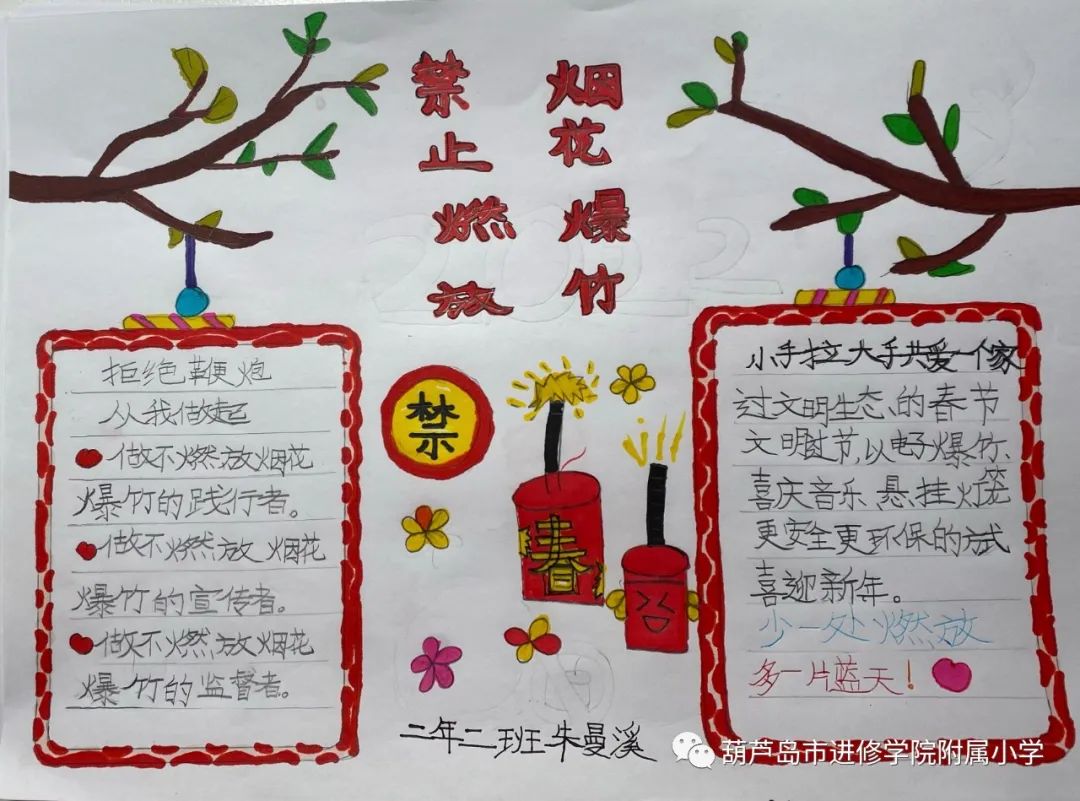 禁止燃放
烟花爆竹
拒绝鞭炮
从我做起
做不燃放烟花
爆竹的践行者。
做不燃放烟花
爆竹的宣传者。
做不燃放烟花
爆竹的监督者。
禁
春
小手拉大手共爱一个家
过文明生态的春节
文明过节,以电子爆竹、
喜庆音乐、悬挂灯笼
更安全更环保的方式
喜迎新年。
少一处燃放
多一片蓝天!
二年二班朱曼溪
2022
葫芦岛市进修学院附属小学